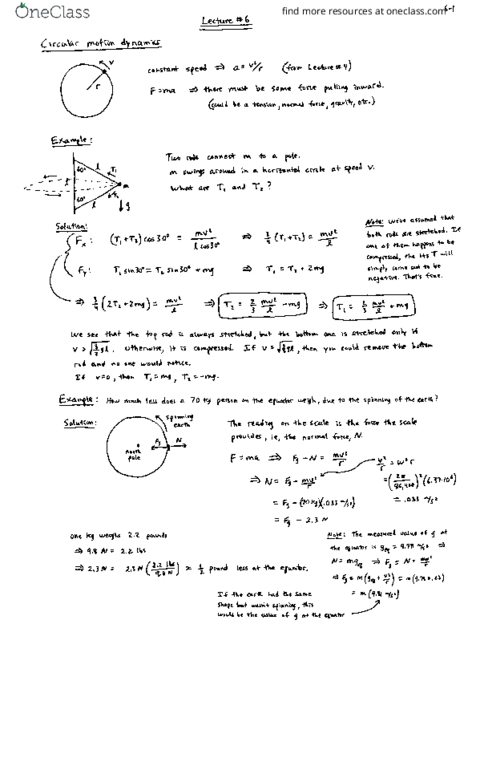 OneClass
find more resources at oneclass.com
6-1
Lecture #6
Circular motion dynamics
v
r
constant speed ⇒ a = v²/r (from Lecture #4)
F=ma ⇒ there must be some force pulling inward.
(could be a tension, normal force, gravity, etc.)
Example:
Two rods connect m to a pole.
m swings around in a horizontal circle at speed v.
What are T₁ and T₂?
60°
l
T₁
l
m
60°
l
T₂
g
Solution:
Fx: (T₁+T₂) cos 30° = mv²/(l cos 30°) ⇒ 3/4 (T₁+T₂) = mv²/l
Fy: T₁ sin 30° = T₂ sin 30° + mg ⇒ T₁ = T₂ + 2mg
Note: We've assumed that
both rods are stretched. If
one of them happens to be
compressed, then its T will
simply come out to be
negative. That's fine.
⇒ 3/4 (2T₂ + 2mg) = mv²/l ⇒ T₂ = 2/3 mv²/l - mg ⇒ T₁ = 2/3 mv²/l + mg
We see that the top rod is always stretched, but the bottom one is stretched only if
v > √(3/2 gl). Otherwise, it is compressed. If v = √(3/2 gl), then you could remove the bottom
rod and no one would notice.
If v=0, then T₁ = mg, T₂ = -mg.
Example: How much less does a 70 kg person on the equator weigh, due to the spinning of the earth?
Solution:
spinning
earth
Fg
N
north
pole
The reading on the scale is the force the scale
provides, ie, the normal force, N.
F = ma ⇒ Fg - N = mv²/r
⇒ N = Fg - mv²/r
= Fg - (70 kg)(.033 m/s²)
= Fg - 2.3 N
v²/r = ω²r
= (2π/86,400)² (6.37·10⁶)
= .033 m/s²
one kg weighs 2.2 pounds
⇒ 9.8 N = 2.2 lbs
⇒ 2.3 N = 2.3 N (2.2 lbs/9.8 N) ≈ 1/2 pound less at the equator.
Note: The measured value of g at
the equator is g_eq = 9.78 m/s² ⇒
N = mg_eq ⇒ Fg = N + mv²/r
⇒ Fg = m(g_eq + v²/r) = m(9.78 + .03)
= m(9.81 m/s²)
If the earth had the same
shape but wasn't spinning, this
would be the value of g at the equator